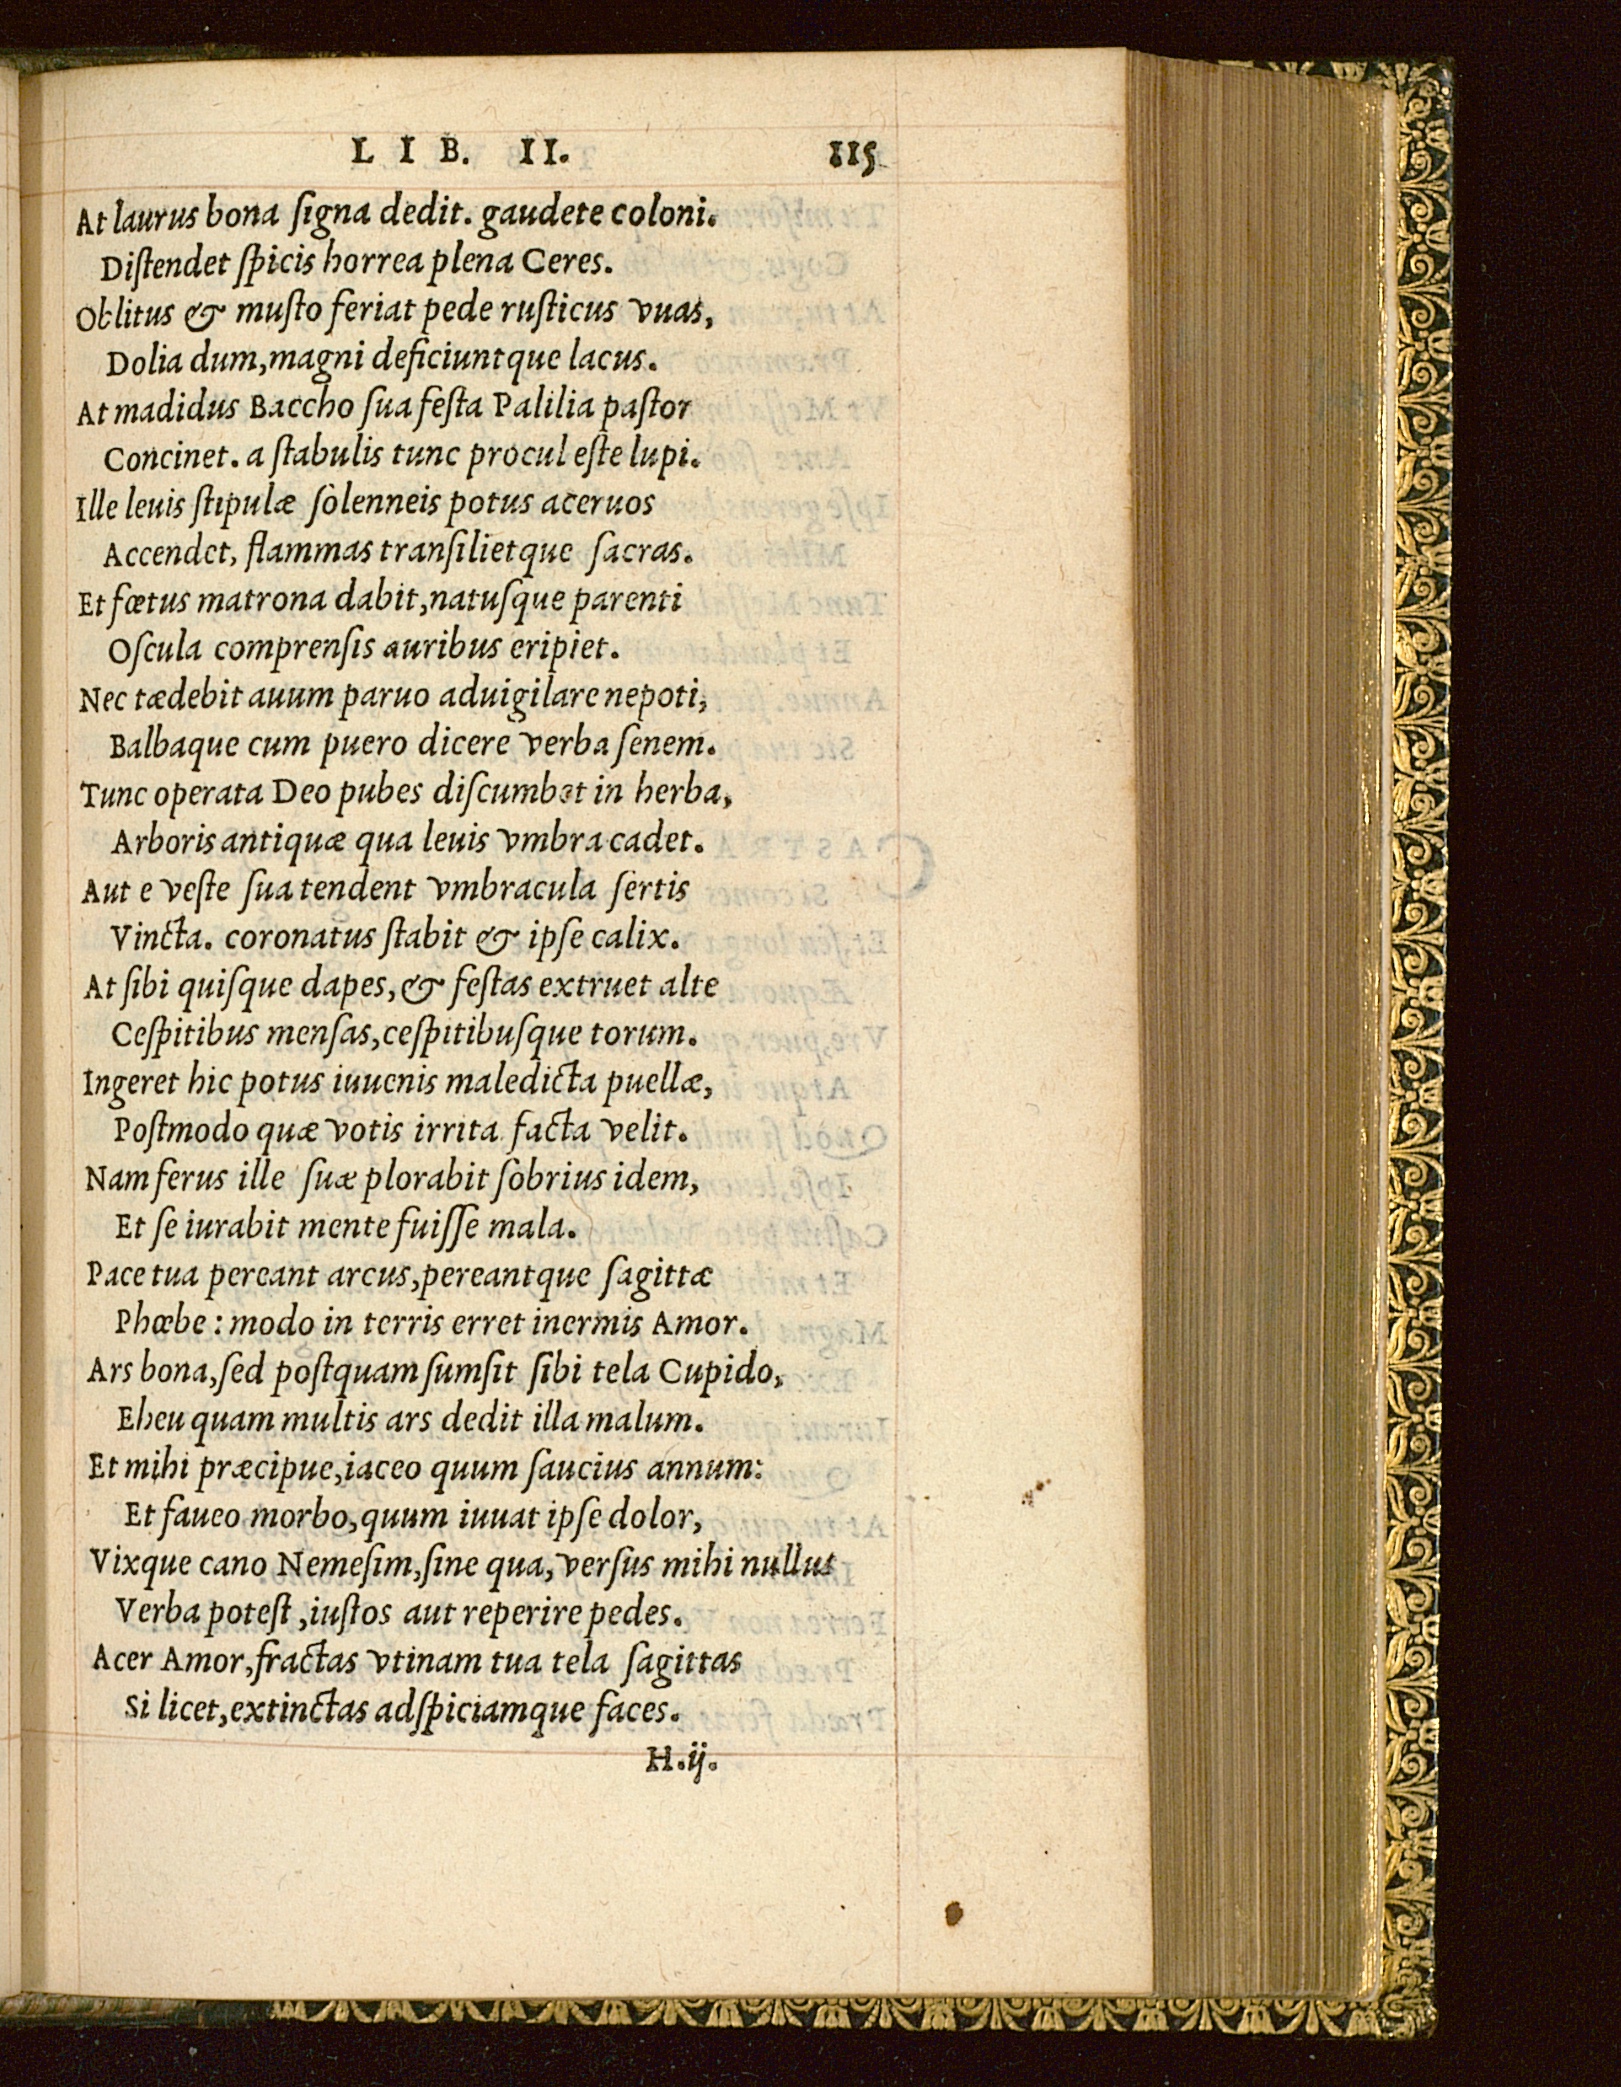 LIB. II. 115
At laurus bona ſigna dedit. gaudete coloni.
Diſtendet ſpicis horrea plena Ceres.
Oblitus & muſto feriat pede ruſticus vuas,
Dolia dum, magni deficiuntque lacus.
At madidus Baccho ſua feſta Palilia paſtor
Concinet. a ſtabulis tunc procul eſte lupi.
Ille leuis ſtipulæ ſolenneis potus aceruos
Accendet, flammas tranſilietque ſacras.
Et fœtus matrona dabit, natuſque parenti
Oſcula comprenſis auribus eripiet.
Nec tædebit auum paruo aduigilare nepoti,
Balbaque cum puero dicere verba ſenem.
Tunc operata Deo pubes diſcumbet in herba,
Arboris antiquæ qua leuis vmbra cadet.
Aut e veſte ſua tendent vmbracula ſertis
Vincta. coronatus ſtabit & ipſe calix.
At ſibi quiſque dapes, & feſtas extruet alte
Ceſpitibus menſas, ceſpitibuſque torum.
Ingeret hic potus iuuenis maledicta puellæ,
Poſtmodo quæ votis irrita facta velit.
Nam ferus ille ſuæ plorabit ſobrius idem,
Et ſe iurabit mente fuiſſe mala.
Pace tua pereant arcus, pereantque ſagittæ
Phœbe: modo in terris erret inermis Amor.
Ars bona, ſed poſtquam ſumſit ſibi tela Cupido,
Eheu quam multis ars dedit illa malum.
Et mihi præcipue, iaceo quum ſaucius annum:
Et faueo morbo, quum iuuat ipſe dolor,
Vixque cano Nemeſim, ſine qua, verſus mihi nullus
Verba poteſt, iuſtos aut reperire pedes.
Acer Amor, fractas vtinam tua tela ſagittas
Si licet, extinctas adſpiciamque faces.
H.ij.